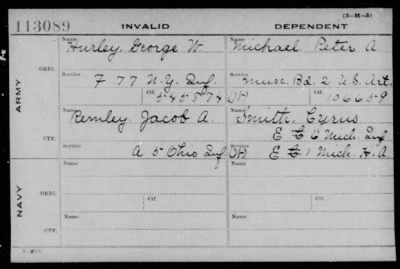 (3-H-5)
113089 INVALID DEPENDENT
Name Name
Hurley, George W. Michael Peter A.
ORIG. Service Service
F 77 N.Y. Inf. Musc. Bd. 2 U.S. Art.
Ctf. 545574 (H) Ctf. 106659
ARMY
Name Name
Remley, Jacob A. Smith, Cyrus
E & C Mich. Inf
CTF. Service Service
A 5 Ohio Inf (H) E & 1 Mich. H.A.
Name Name
ORIG. Service Ctf. Service Ctf.
NAVY
Name Name
CTF. Service Service